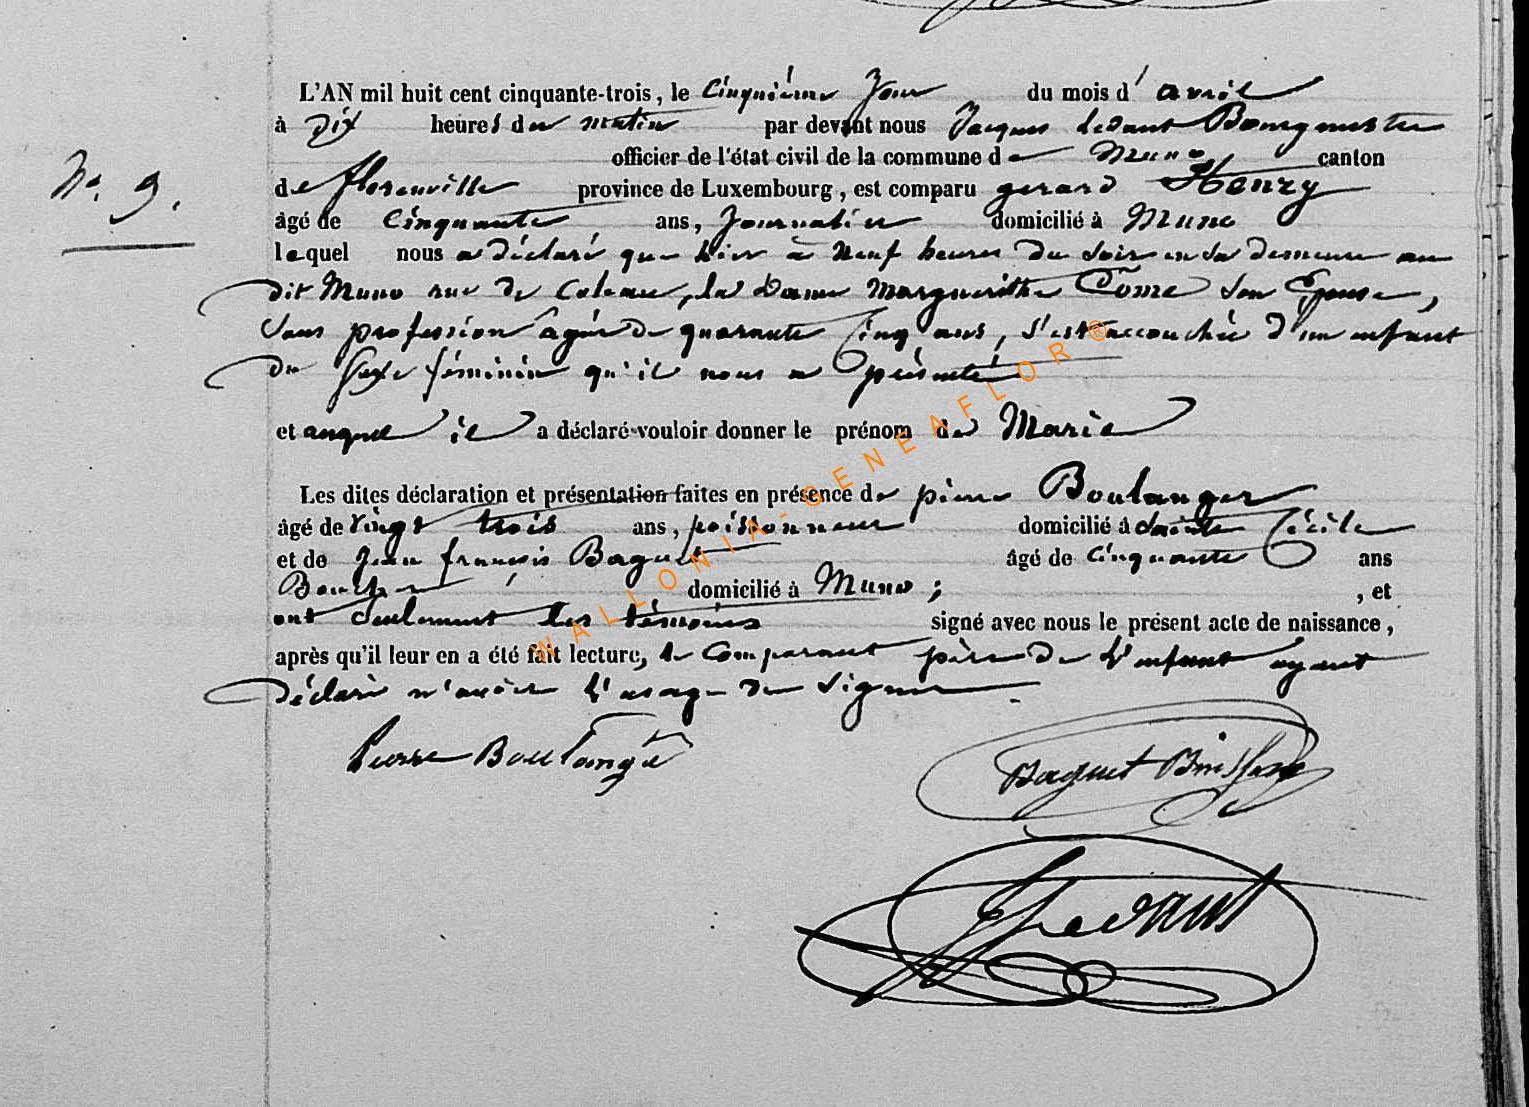 L'AN mil huit cent cinquante-trois, le Cinquième Jour du mois d'avril
à Dix heures du matin par devant nous Jacques Ledant Bourgmestre
officier de l'état civil de la commune de Muno canton
de florenville province de Luxembourg, est comparu gerard Henry
âgé de Cinquante ans, Journalier domicilié à Muno
N° 9.
lequel nous a déclaré que hier à Neuf heures du Soir en Sa demeure au
dit Muno rue de, la Dame Margueritte Tome Son Epouse,
Sans profession âgée de quarante Cinq ans, s'est accouchée d'un enfant
du Sexe féminin qu'il nous a présenté
et auquel il a déclaré vouloir donner le prénom de Marie
Les dites déclaration et présentation faites en présence de pierre Boulanger
âgé de vingt trois ans, poissonneur domicilié à Sainte Cécile
et de Jean françois Baguet âgé de Cinquante ans
domicilié à Muno ; , et
ont Seulement les témoins signé avec nous le présent acte de naissance,
après qu'il leur en a été fait lecture, le Comparant père de l'enfant ayant
déclaré n'avoir l'usage de Signer
Pierre Boulangé
Baguet
Ledant
WALLONIA-GENEAFLOR®